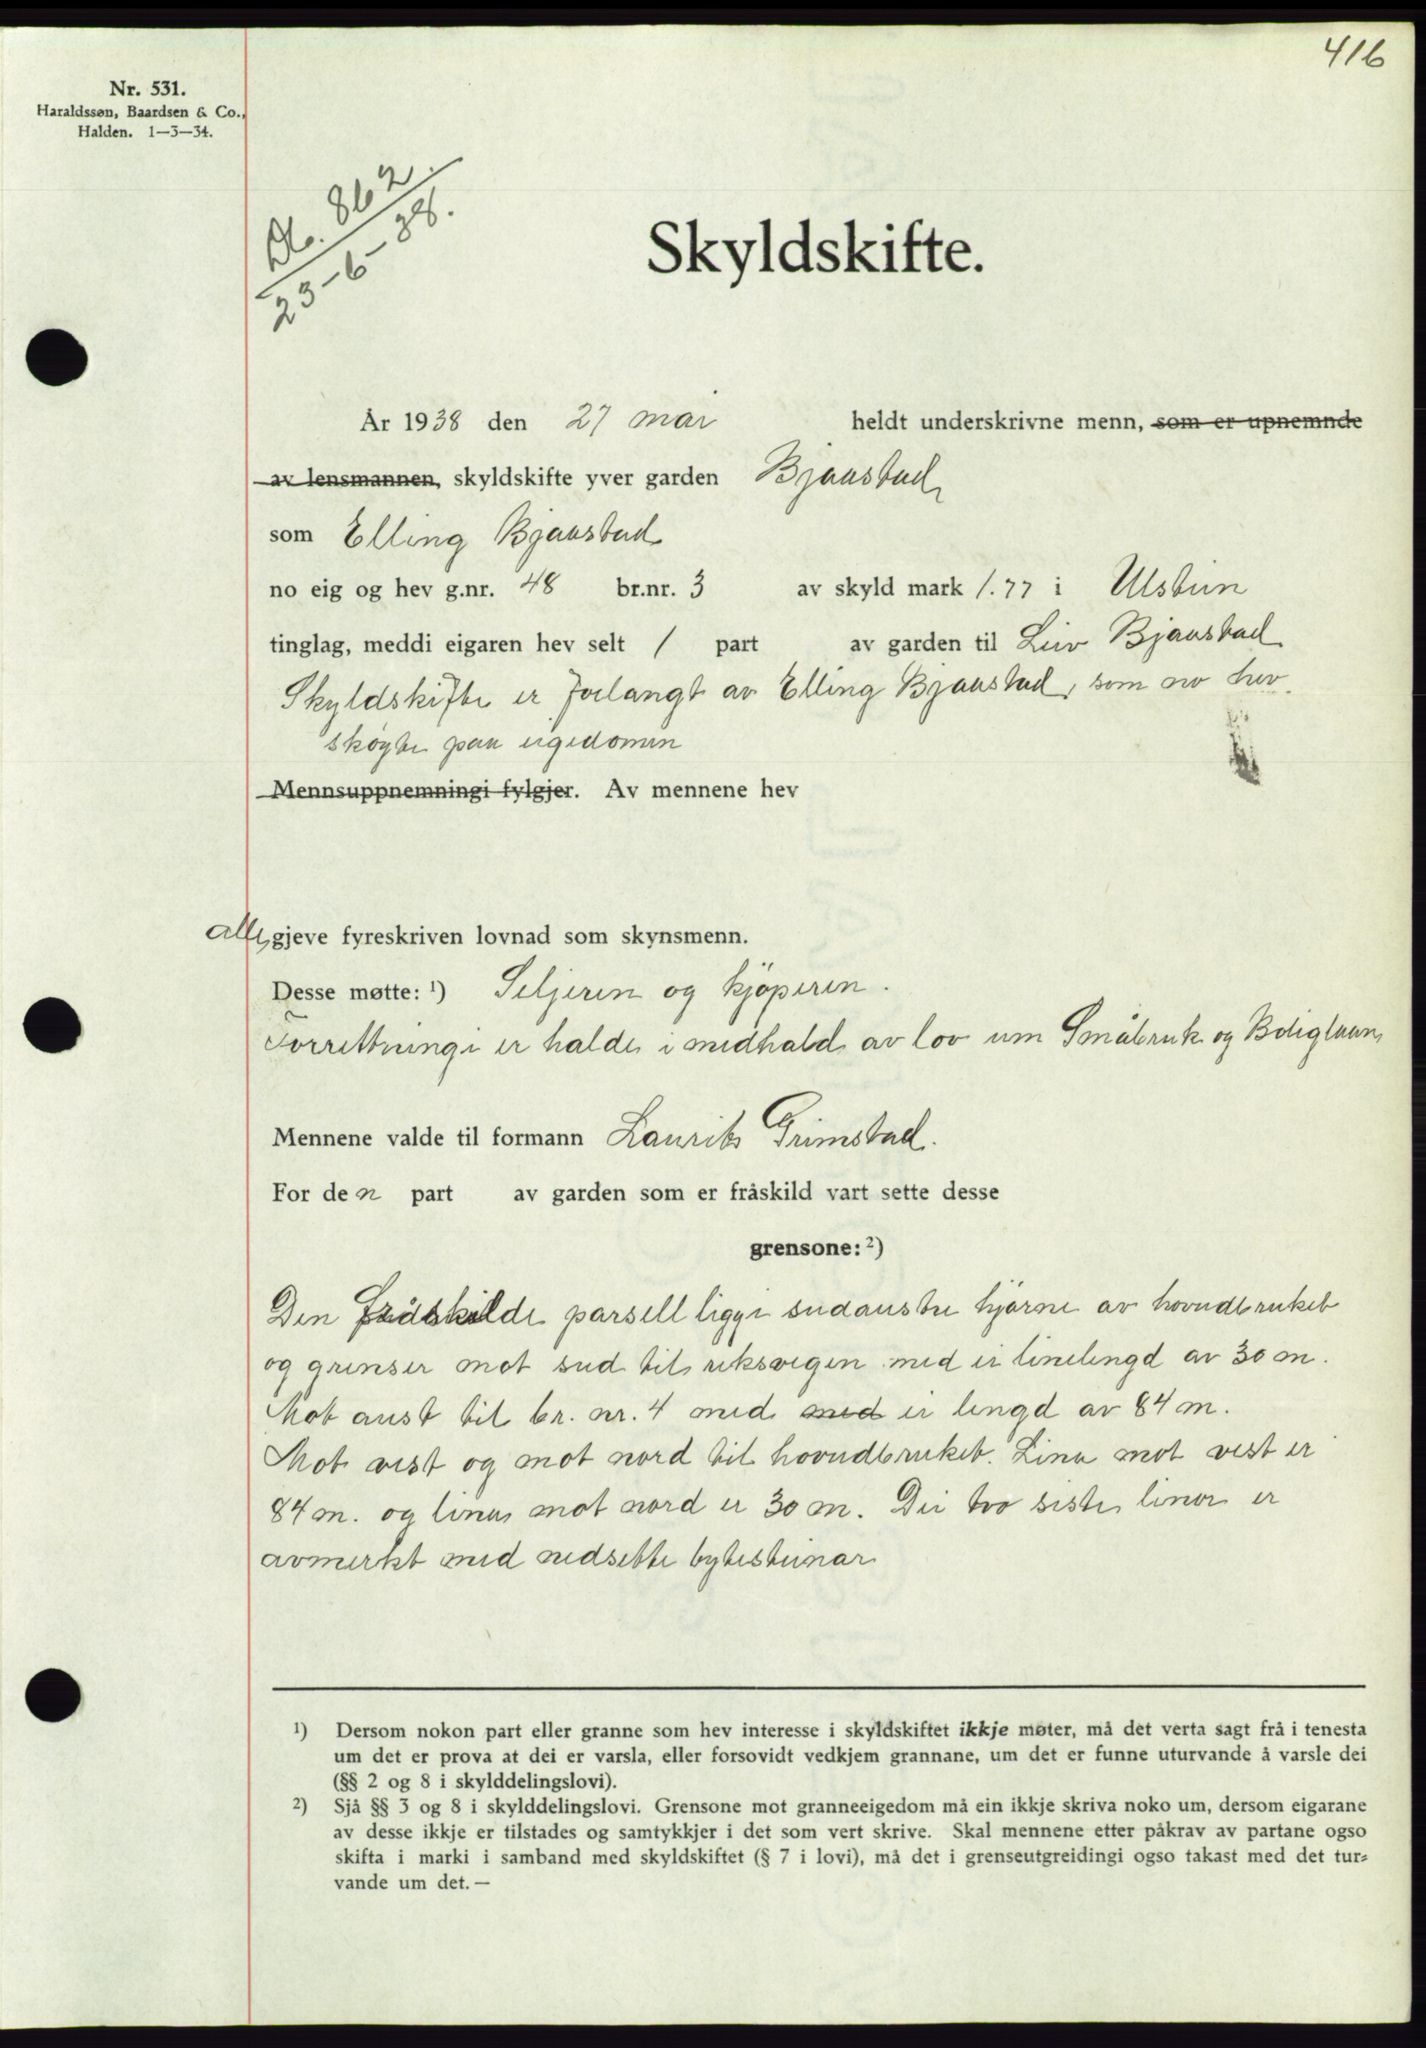 416
Nr. 531.
Haraldssøn, Baardsen & Co.,
Halden. 1—3—34.
Db. 862.
23-6-38.
Skyldskifte.
År 1938 den 27 mai heldt underskrivne menn, som er upnemnde
av lensmannen, skyldskifte yver garden Bjaastad
som Elling Bjaastad
no eig og hev g.nr. 48 br.nr. 3 av skyld mark 1.77 i Ulstein
tinglag, meddi eigaren hev selt 1 part av garden til Leiv Bjaastad
Skyldskifte er forlangt av Elling Bjaastad, som no hev
skøyte paa eigedomen
Mennsuppnemningi fylgjer. Av mennene hev
alle gjeve fyreskriven lovnad som skynsmenn.
Desse møtte: ¹) Seljeren og kjöperen.
Forrettningi er halde i medhald av lov um Småbruk og Boliglaan
Mennene valde til formann Laurits Grimstad.
For den part av garden som er fråskild vart sette desse
grensone: ²)
Den fråskilde parsell ligge i sudaustre hjörne av hovudbruket
og grenser mot sud til riksvegen med ei linelengd av 30 m.
Mot aust til br. nr. 4 med med ei lengd av 84 m.
Mot vest og mot nord til hovudbruket. Lina mot vest er
84 m. og lina mot nord er 30 m. Dei tvo siste linor er
avmerkt med nedsette bytesteinar
¹) Dersom nokon part eller granne som hev interesse i skyldskiftet ikkje møter, må det verta sagt frå i tenesta
um det er prova at dei er varsla, eller forsovidt vedkjem grannane, um det er funne uturvande å varsle dei
(§§ 2 og 8 i skylddelingslovi).
²) Sjå §§ 3 og 8 i skylddelingslovi. Grensone mot granneeigedom må ein ikkje skriva noko um, dersom eigarane
av desse ikkje er tilstades og samtykkjer i det som vert skrive. Skal mennene etter påkrav av partane ogso
skifta i marki i samband med skyldskiftet (§ 7 i lovi), må det i grenseutgreidingi ogso takast med det tur-
vande um det. —